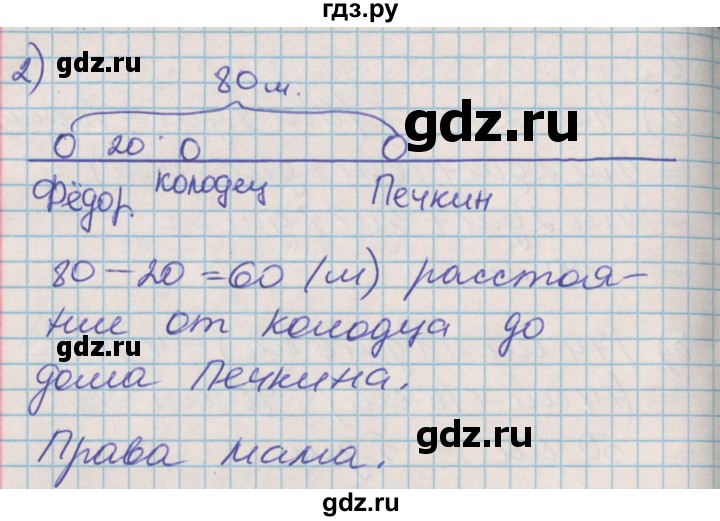 гдз.ру
2) gdz.ru
80 м.
20
gdz.ru
Фёдор. колодец Печкин
80 – 20 = 60 (м) расстоя-
ние от колодца до
gdz.ru
дома Печкина.
gdz.ru
Права мама.
gdz.ru